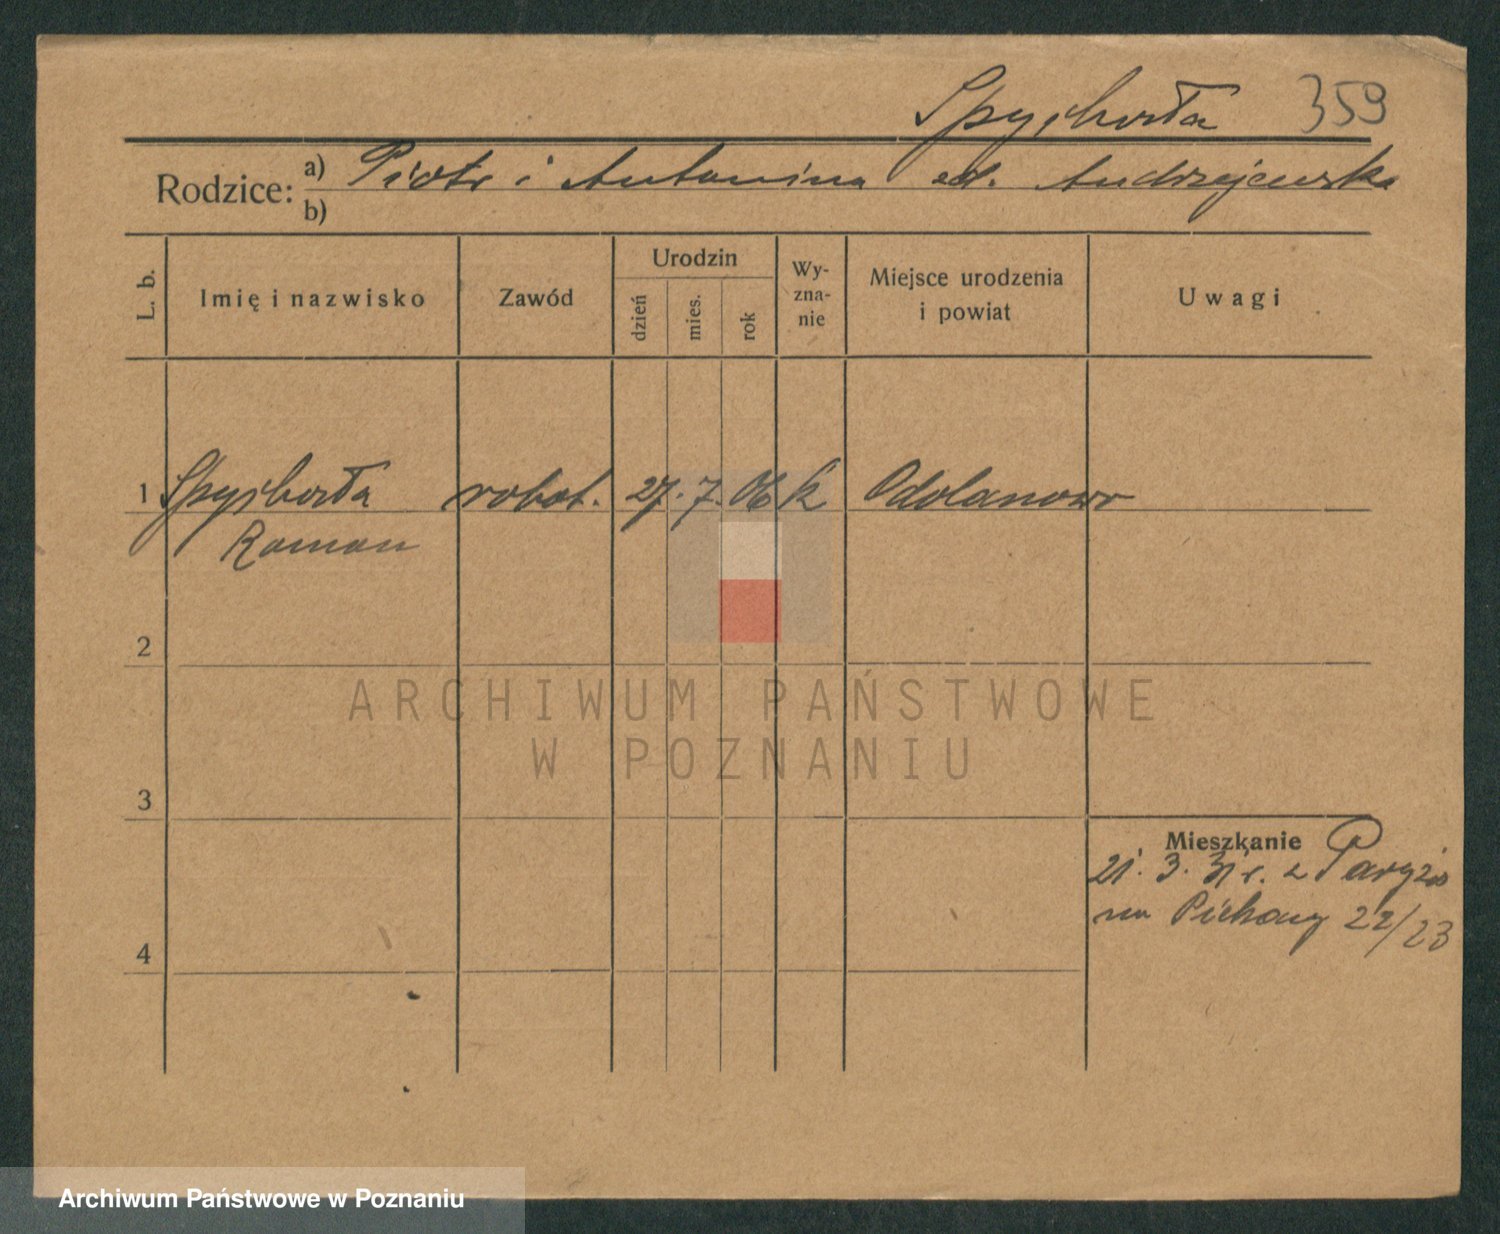 Spychała 359
Rodzice: a) Piotr i Antonina zd. Andrzejewska
b)
L. b. Imię i nazwisko Zawód Urodzin dzień mies. rok Wy-zna-nie Miejsce urodzenia i powiat Uwagi
1 Spychała robot. 27. 7. 06 k Odolanowo
Roman
2
ARCHIWUM PAŃSTWOWE
W POZNANIU
3
Mieszkanie
21. 3. 31 r. z Paryża
na 22/23
4
Archiwum Państwowe w Poznaniu